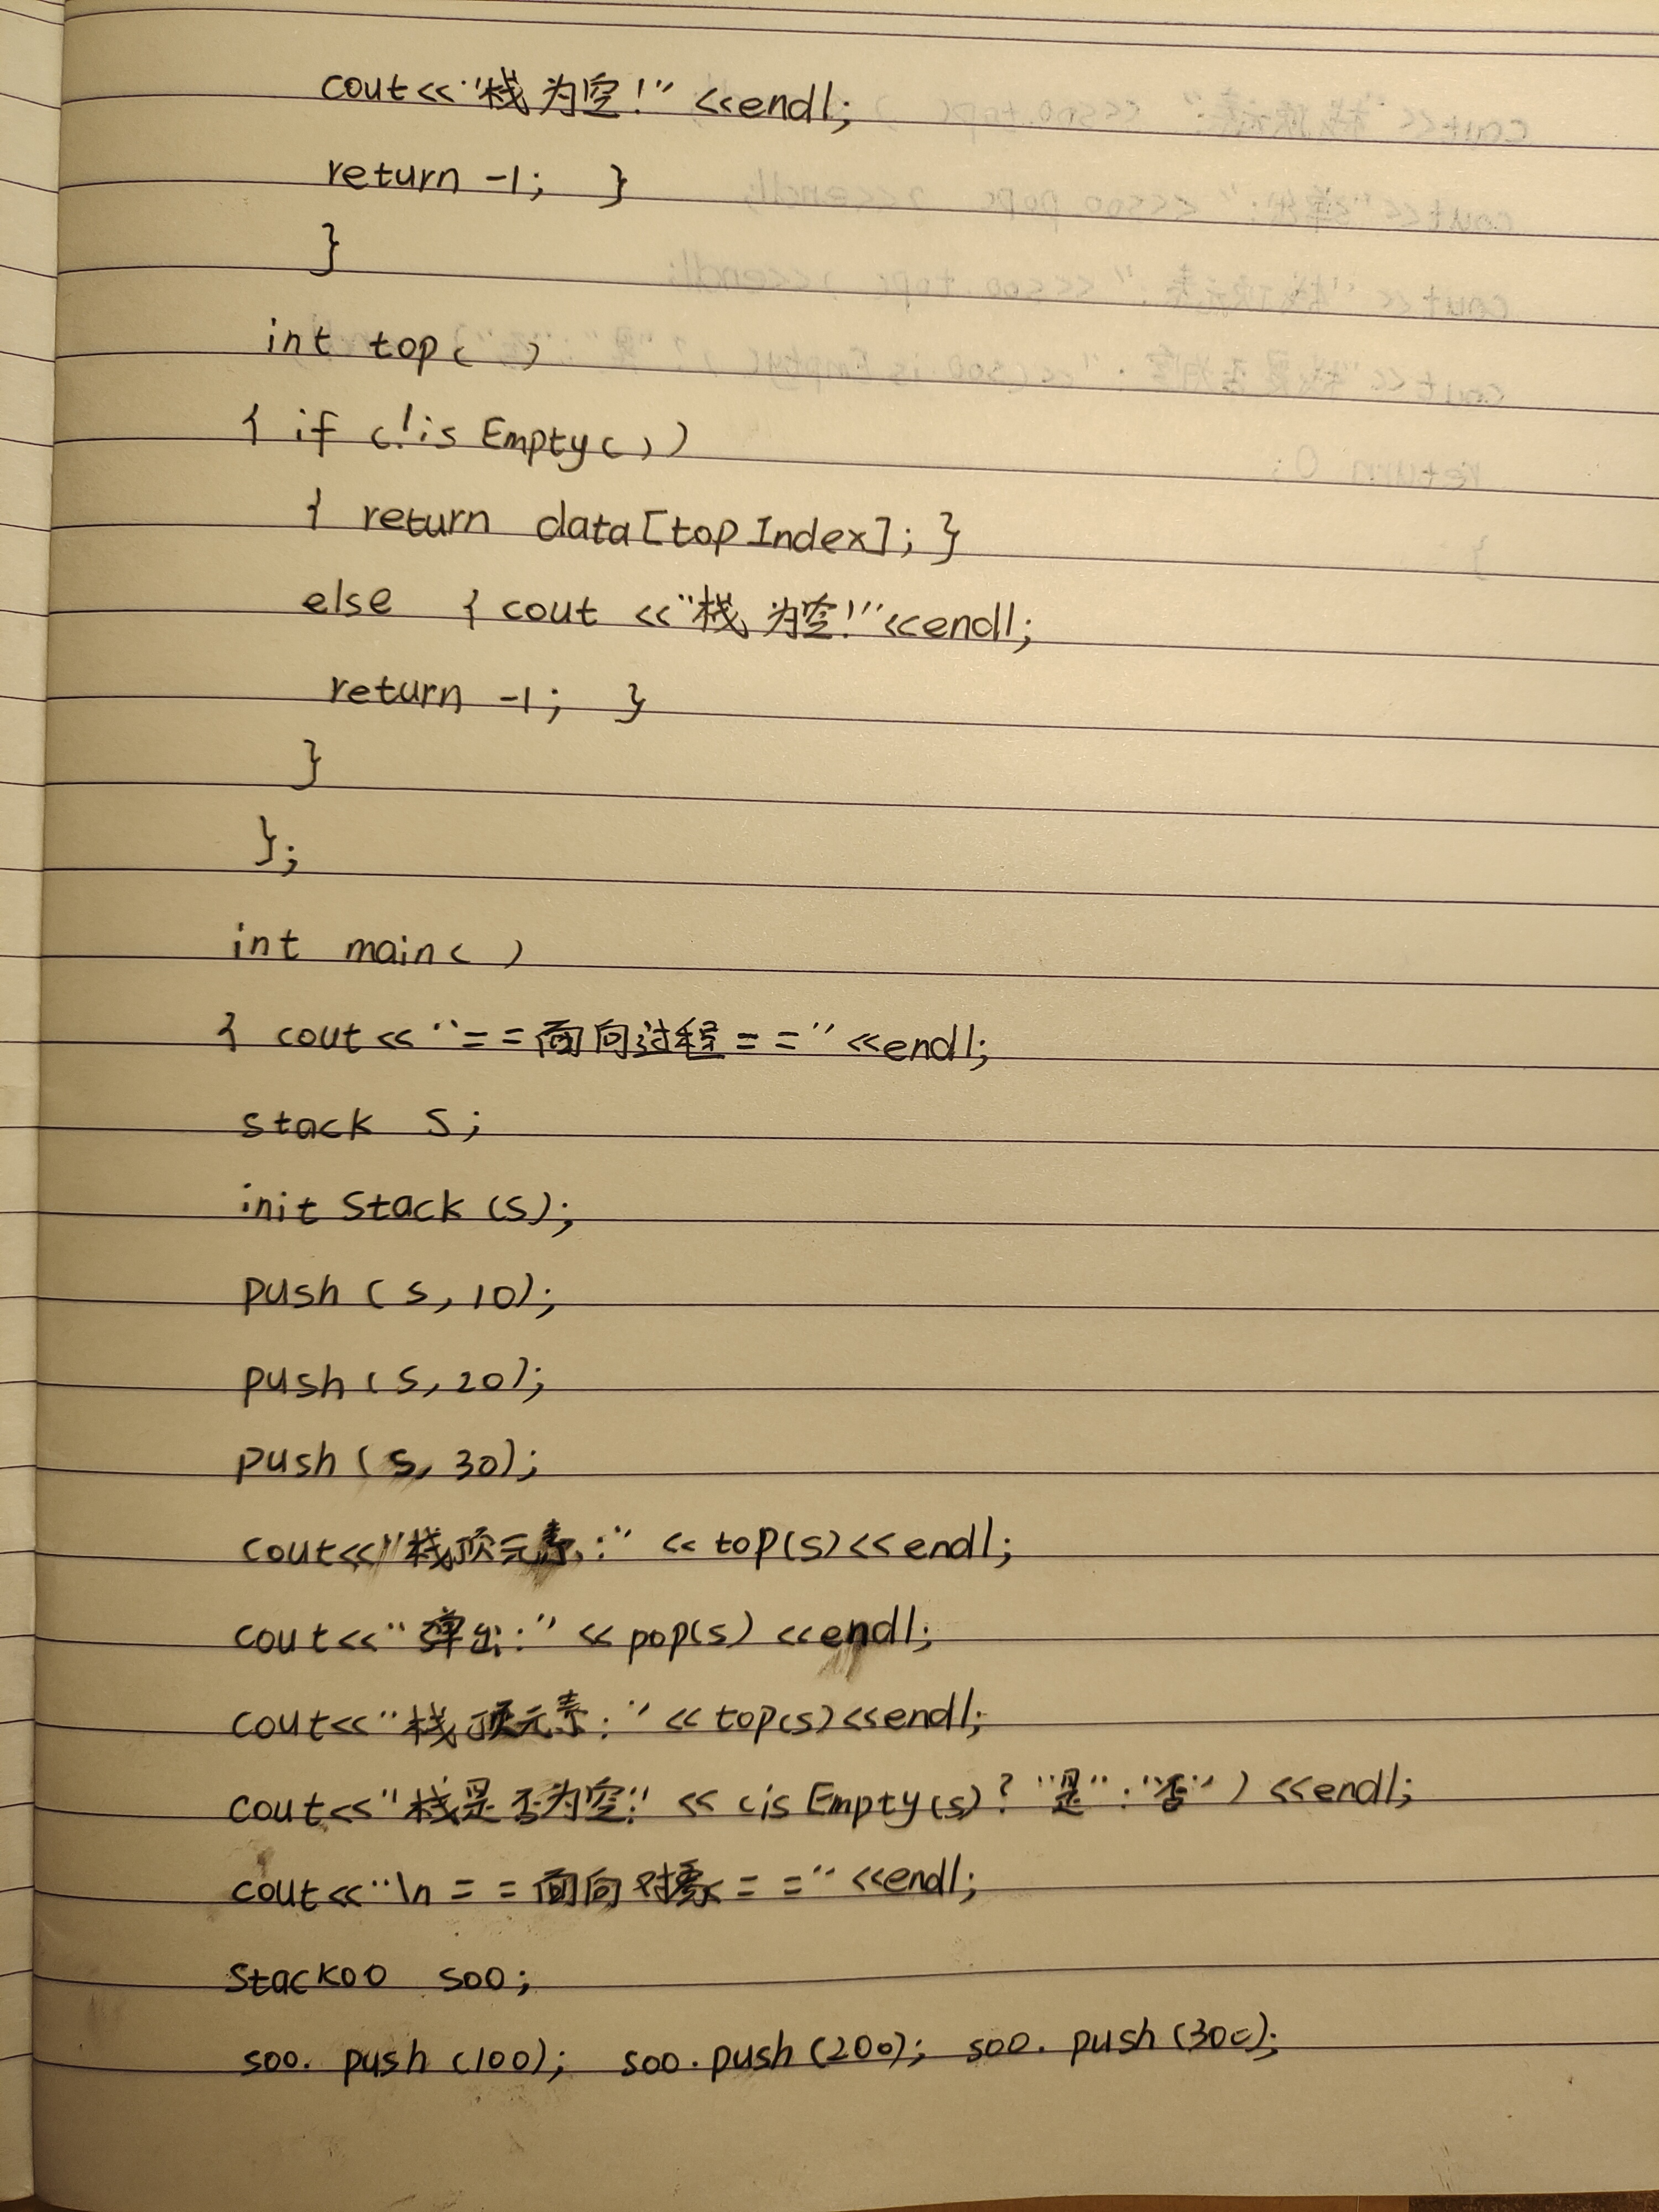 cout<<"栈为空!"<<endl;
return -1; }
}
int top( )
{ if (!isEmpty())
{ return data[topIndex]; }
else { cout <<"栈为空!"<<endl;
return -1; }
}
};
int main( )
{ cout<<"==面向过程=="<<endl;
stack s;
initStack(s);
push(s,10);
push(s,20);
push(s,30);
cout<<"栈顶元素:"<<top(s)<<endl;
cout<<"弹出:"<<pop(s)<<endl;
cout<<"栈顶元素:"<<top(s)<<endl;
cout<<"栈是否为空:"<<(isEmpty(s)?"是":"否")<<endl;
cout<<"\n==面向对象=="<<endl;
StackOO soo;
soo.push(100); soo.push(200); soo.push(300);